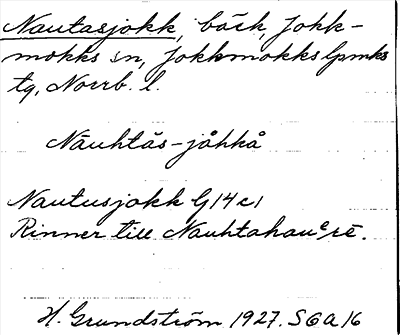 Nautasjokk, bäck, Jokk-
mokks sn, Jokkmokks lpmks
tg, Norrb. l.
Nåuhtås-jåhkå
Nautusjokk G14c1
Rinner till Nauhtahauᵉrē.
H. Grundström 1927. SGA 16